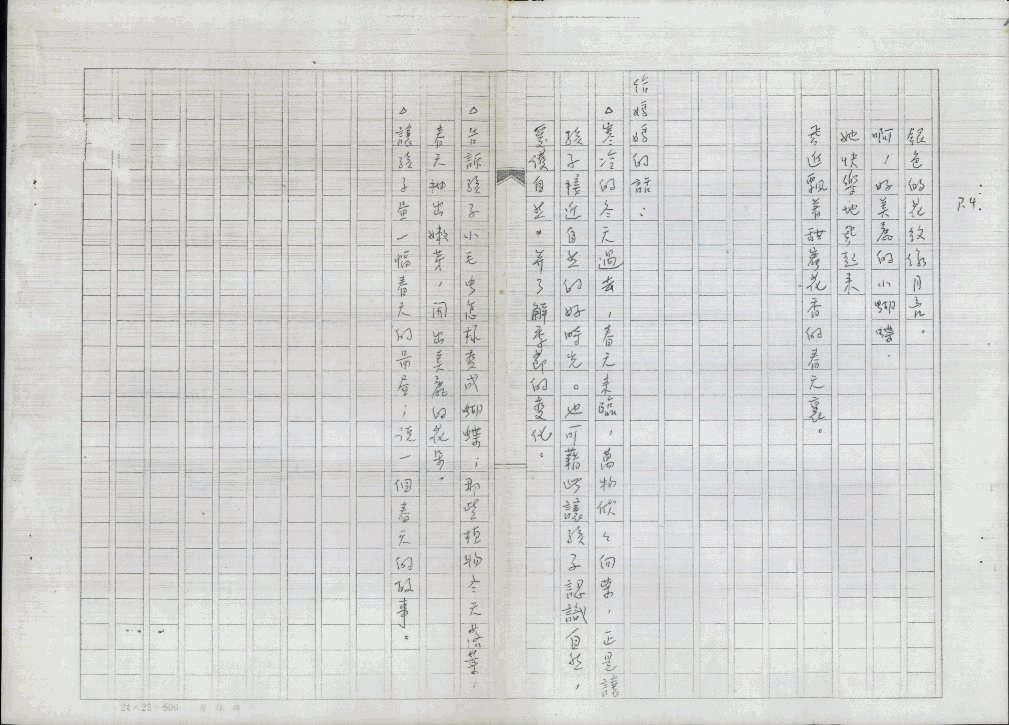 P.4.
銀色的花紋像月亮。
啊，好美麗的小蝴蝶，
她快樂地飛起來
飛近飄著甜蜜花香的春天裏。
給媽媽的話：
△寒冷的冬天過去，春天來臨，萬物欣々向榮，正是讓
孩子接近自然的好時光。也可藉此讓孩子認識自然，
愛護自然。並了解季節的变化。
△告訴孩子小毛虫怎樣变成蝴蝶；那些植物冬天落葉，
春天抽出嫩芽，開出美麗的花朵。
△讓孩子畫一幅春天的圖畫；說一個春天的故事。
24×25=600